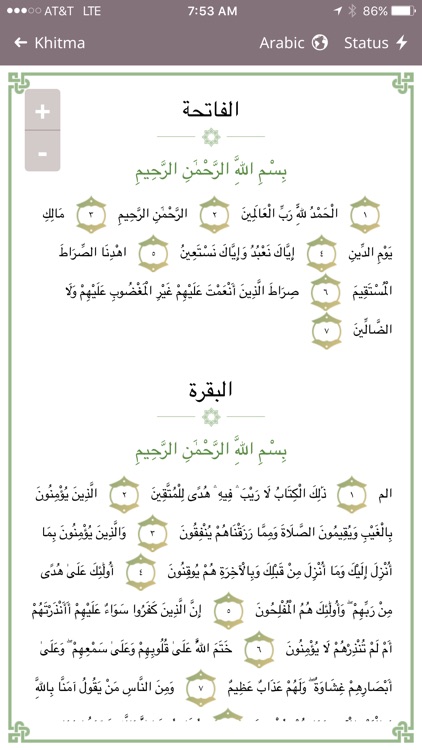 AT&T LTE 7:53 AM 86%
← Khitma Arabic Status
+
-
الفاتحة
بِسْمِ اللَّهِ الرَّحْمَٰنِ الرَّحِيمِ
١ الْحَمْدُ لِلَّهِ رَبِّ الْعَالَمِينَ ٢ الرَّحْمَٰنِ الرَّحِيمِ ٣ مَالِكِ
يَوْمِ الدِّينِ ٤ إِيَّاكَ نَعْبُدُ وَإِيَّاكَ نَسْتَعِينُ ٥ اهْدِنَا الصِّرَاطَ
الْمُسْتَقِيمَ ٦ صِرَاطَ الَّذِينَ أَنْعَمْتَ عَلَيْهِمْ غَيْرِ الْمَغْضُوبِ عَلَيْهِمْ وَلَا
الضَّالِّينَ ٧
البقرة
بِسْمِ اللَّهِ الرَّحْمَٰنِ الرَّحِيمِ
الم ١ ذَٰلِكَ الْكِتَابُ لَا رَيْبَ ۛ فِيهِ ۛ هُدًى لِلْمُتَّقِينَ ٢ الَّذِينَ يُؤْمِنُونَ
بِالْغَيْبِ وَيُقِيمُونَ الصَّلَاةَ وَمِمَّا رَزَقْنَاهُمْ يُنْفِقُونَ ٣ وَالَّذِينَ يُؤْمِنُونَ بِمَا
أُنْزِلَ إِلَيْكَ وَمَا أُنْزِلَ مِنْ قَبْلِكَ وَبِالْآخِرَةِ هُمْ يُوقِنُونَ ٤ أُولَٰئِكَ عَلَىٰ هُدًى
مِنْ رَبِّهِمْ ۖ وَأُولَٰئِكَ هُمُ الْمُفْلِحُونَ ٥ إِنَّ الَّذِينَ كَفَرُوا سَوَاءٌ عَلَيْهِمْ أَأَنْذَرْتَهُمْ
أَمْ لَمْ تُنْذِرْهُمْ لَا يُؤْمِنُونَ ٦ خَتَمَ اللَّهُ عَلَىٰ قُلُوبِهِمْ وَعَلَىٰ سَمْعِهِمْ ۖ وَعَلَىٰ
أَبْصَارِهِمْ غِشَاوَةٌ ۖ وَلَهُمْ عَذَابٌ عَظِيمٌ ٧ وَمِنَ النَّاسِ مَنْ يَقُولُ آمَنَّا بِاللَّهِ